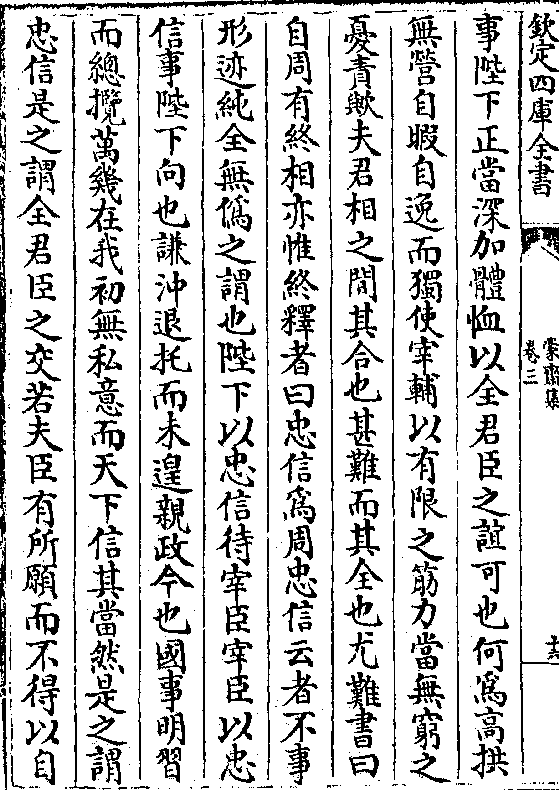 欽定四庫全書
蒙齋集
卷三
事陛下正當深加體恤以全君臣之誼可也何為高拱
無營自暇自逸而獨使宰輔以有限之筋力當無窮之
憂責歟夫君相之間其合也甚難而其全也尤難書曰
自周有終相亦惟終釋者曰忠信為周忠信云者不事
形迹純全無偽之謂也陛下以忠信待宰臣宰臣以忠
信事陛下向也謙沖退托而未遑親政今也國事明習
而總攬萬幾在我初無私意而天下信其當然是之謂
忠信是之謂全君臣之交若夫臣有所願而不得以自